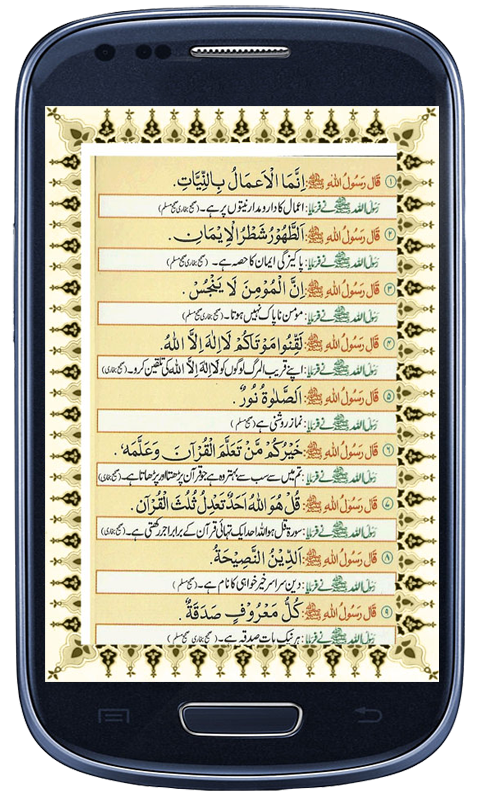 ۱ قَالَ رَسُولُ اللهِ ﷺ: اِنَّمَا الْاَعمَالُ بِالنِّيَّاتِ.
رَسُولُ الله ﷺ نے فرمایا: اعمال کا دارومدار نیتوں پر ہے۔ (صحیح بخاری صحیح مسلم)
۲ قَالَ رَسُولُ اللهِ ﷺ: اَلطَّهُوْرُ شَطْرُ الْاِيْمَانِ.
رَسُولُ الله ﷺ نے فرمایا: پاکیزگی ایمان کا حصہ ہے۔ (صحیح بخاری صحیح مسلم)
۳ قَالَ رَسُولُ اللهِ ﷺ: اِنَّ الْمُوْمِنَ لَا يَنْجُسُ.
رَسُولُ الله ﷺ نے فرمایا: مومن ناپاک نہیں ہوتا۔ (صحیح بخاری صحیح مسلم)
۴ قَالَ رَسُولُ اللهِ ﷺ: لَقِّنُوا مَوْتَاكُمْ لَا اِلٰهَ اِلَّا اللهُ.
رَسُولُ الله ﷺ نے فرمایا: اپنے قریب المرگ لوگوں کو لَا اِلٰهَ اِلَّا اللهُ کی تلقین کرو۔ (صحیح بخاری)
۵ قَالَ رَسُولُ اللهِ ﷺ: اَلصَّلٰوةُ نُوْرٌ.
رَسُولُ الله ﷺ نے فرمایا: نماز روشنی ہے (صحیح مسلم)
۶ قَالَ رَسُولُ اللهِ ﷺ: خَيْرُكُمْ مَّنْ تَعَلَّمَ الْقُرْآنَ وَعَلَّمَهٗ.
رَسُولُ الله ﷺ نے فرمایا: تم میں سے سب سے بہتر وہ ہے جو قرآن پڑھتا اور پڑھاتا ہے۔ (صحیح بخاری)
۷ قَالَ رَسُولُ اللهِ ﷺ: قُلْ هُوَ اللهُ اَحَدٌ تَعْدِلُ ثُلُثَ الْقُرْآنِ.
رَسُولُ الله ﷺ نے فرمایا: سورۃ قل ہو اللہ احد ایک تہائی قرآن کے برابر اجر رکھتی ہے۔ (صحیح بخاری)
۸ قَالَ رَسُولُ اللهِ ﷺ: اَلدِّيْنُ النَّصِيْحَةُ.
رَسُولُ الله ﷺ نے فرمایا: دین سراسر خیر خواہی کا نام ہے۔ (صحیح مسلم)
۹ قَالَ رَسُولُ اللهِ ﷺ: كُلُّ مَعْرُوْفٍ صَدَقَةٌ.
رَسُولُ الله ﷺ نے فرمایا: ہر نیک بات صدقہ ہے۔ (صحیح بخاری صحیح مسلم)